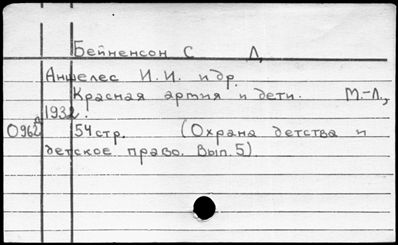 Бейненсон С Д,
Аншелес И.И. и др.
Красная армия и дети. М.-Л.,
1932.
0962д 54 стр. (Охрана детства и
детское право. Вып. 5).